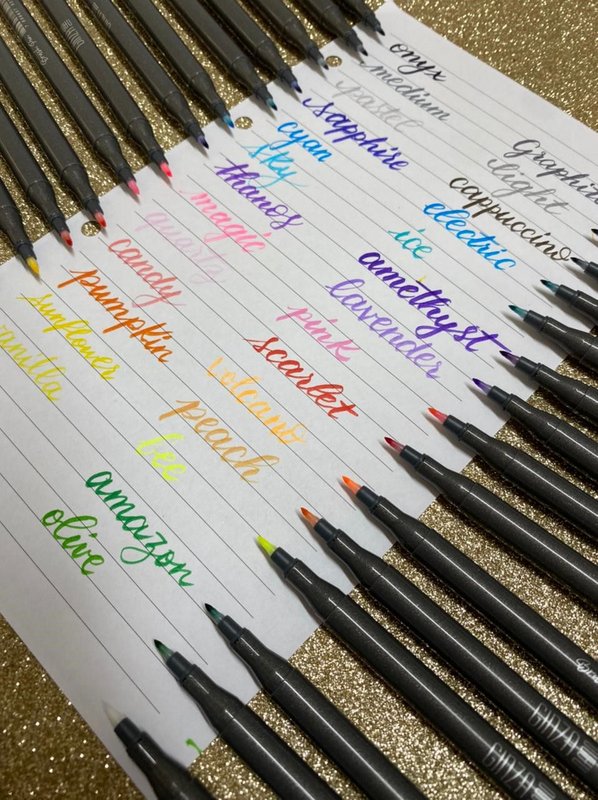 onyx
medium
pastel
sapphire
cyan
sky
thanos
magic
quartz
candy
pumpkin
sunflower
vanilla
Graphite
light
cappuccino
electric
ice
amethyst
lavender
pink
scarlet
volcano
peach
amazon
olive
GINZA
GINZA
GINZA